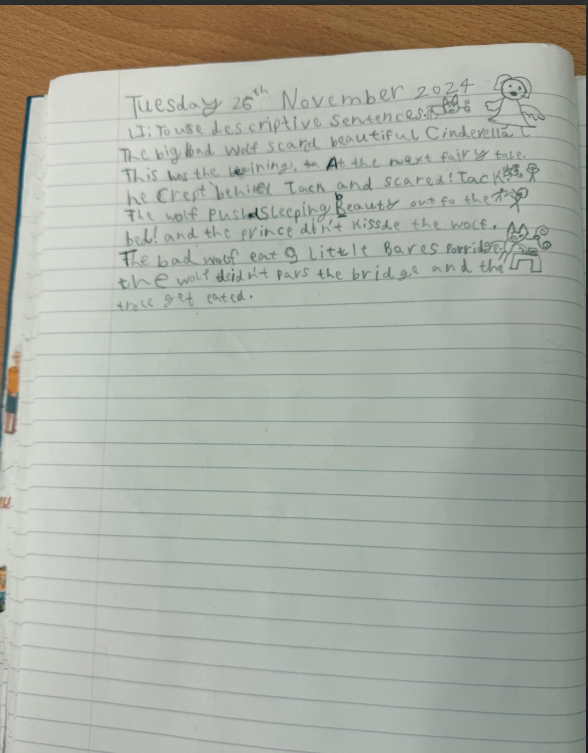 Tuesday 26th November 2024
LI: To use descriptive sentences.
The big bad Wolf scard beautiful Cinderella
This was the begining, At the next fairy tale.
he crept behind Jack and scared! Jack
The wolf Pushd Sleeping Beauty out fo the
bed! and the prince din't Kissde the wolf.
The bad wolf eat 9 little Bares Porridge.
the wolf deidn't pars the bridge and the
troll get eated.